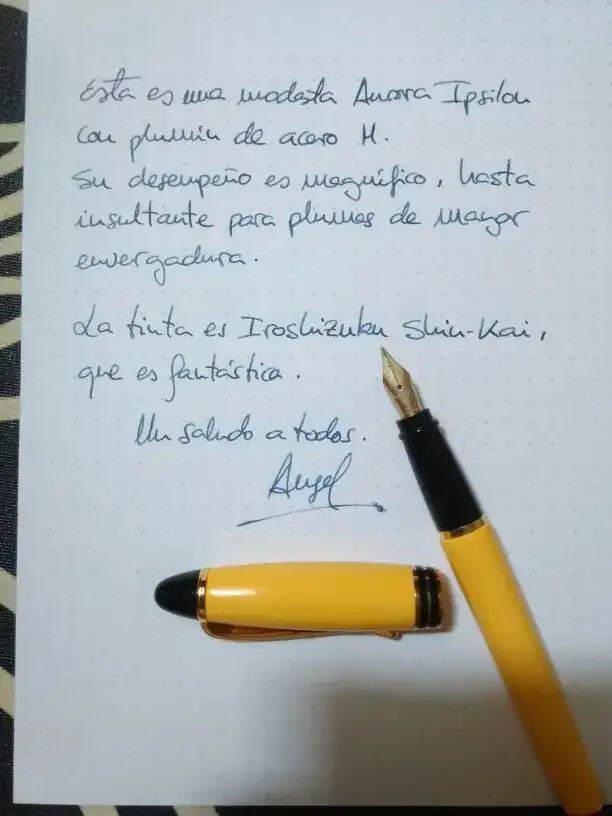 Esta es una modesta Aurora Ipsilon
con plumín de acero M.
Su desempeño es magnífico, hasta
insultante para plumas de mayor
envergadura.
La tinta es Iroshizuku Shin-Kai,
que es fantástica.
Un saludo a todos.
Angel